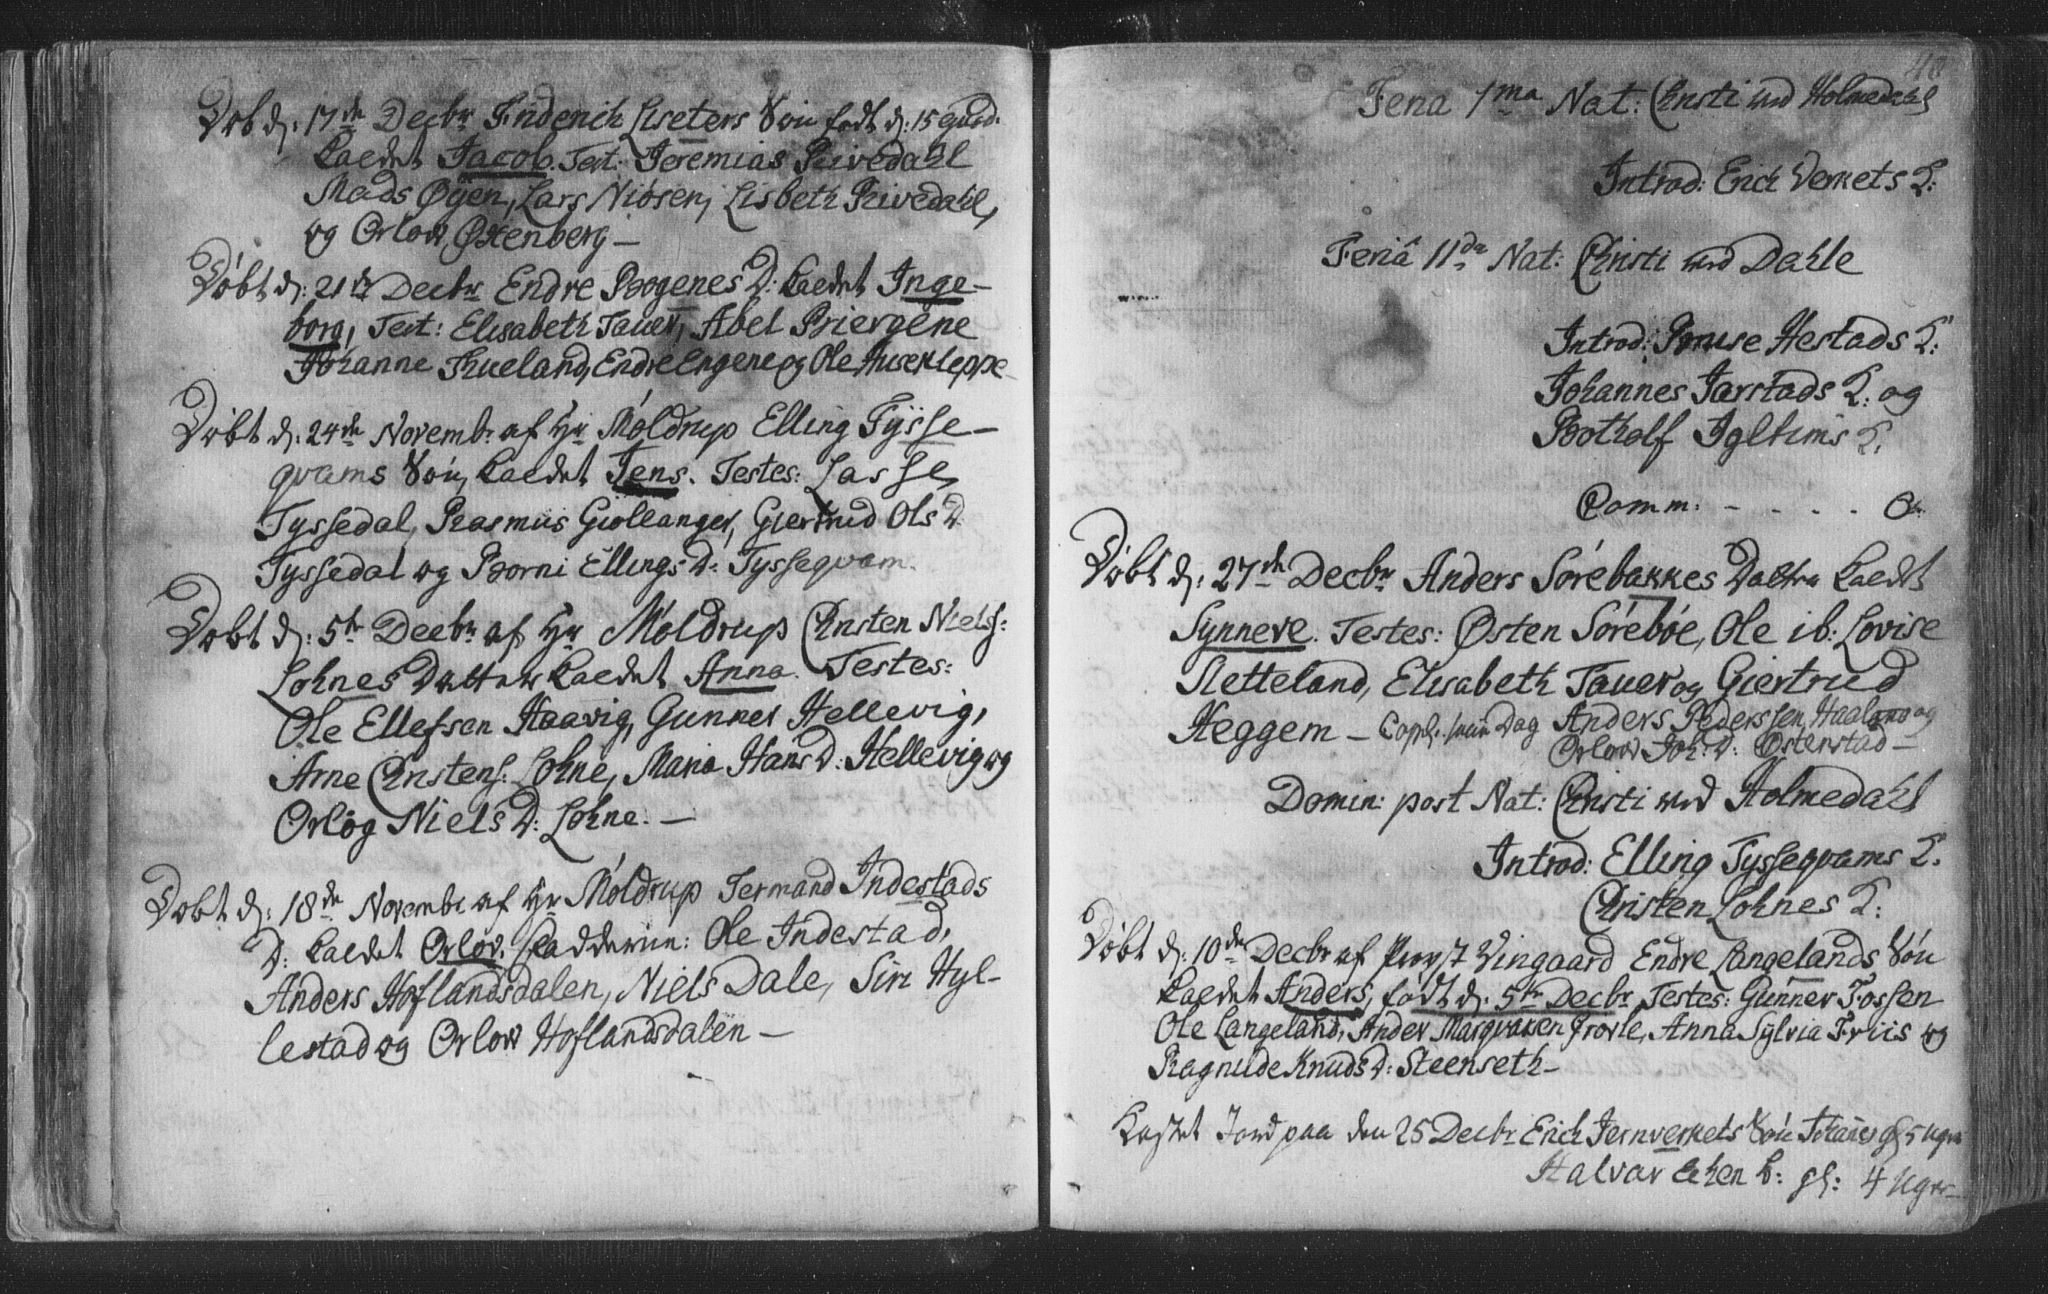 Døbt d: 17de Decbr Friderich Liseters Søn født d: 15
kaldet Jacob. Test: Jeremias Rivedahl
Mads Øyen, Lars Niøsen, Lisbeth Rivedahl,
og Orlow Østenberg —
Døbt d: 21de Decbr Endre Bogenes D: kaldet Inge-
borg, Test: Elisabeth Tauer, Abel Priergène
Johanne Trueland, Endre Engene og Ole Husekleppe
Døbt d: 24de Novembr af Hr Møldrup Elling Tysse-
qvams Søn, kaldet Jens. Testes: Lasse
Tyssedal, Rasmus Giøllanger, Giertrud Ols D:
Tyssedal og Borni Ellings D: Tysseqvam.
Døbt d: 5te Decbr af Hr Møldrup Christen Niels:
Lohnes Datter kaldet Anna. Testes:
Ole Ellefsen Haavig, Gunner Hellevig,
Arne Christens: Lohne, Maria Hans D: Hellevig og
Orløg Niels D: Lohne. —
Døbt d: 18de Novembr af Hr Møldrup Termand Indestads
D: kaldet Orlov. Fadderne: Ole Indestad,
Anders Hoflandsdalen, Niels Dale, Siri Hyl-
lestad og Orlow Hoflandsdalen —
40
Feria 1ma Nat: Christi ved Holmedahl
Introd: Erich Verkets K:
Feriâ 11da Nat: Christi ved Dahle
Introd: Bruse Hestads K:
Johannes Jarstads K: og
Botholf Igltims K.
Comm. - . . . . 0.
Døbt d: 27de Decbr Anders Sørebakkes Datter kaldt
Synneve. Testes: Østen Sørebøe, Ole ib: Lovise
Sletteland, Elisabeth Tauer og Giertrud
Heggem — Copl. samme Dag Anders Pederssen Haaland og
Orlow Joh: D: Østenstad —
Domin: post Nat: Christi ved Holmedahl
Introd: Elling Tysseqvams K.
Christen Lohnes K:
Døbt d: 10de Decbr af Provst Vingaard Endre Langelands Søn
kaldet Anders, født d: 5te Decbr Testes: Gunner Fossen
Ole Langeland, Ander Marqvaken Frovle, Anna Sylvia Friis og
Ragnilde Knuds D: Steenseth —
Kastet Jord paa den 25 Decbr Erich Jernverkets Søn Johañes gl: 5 Uger
Halvar Ekren b: gl: 4 Uger —